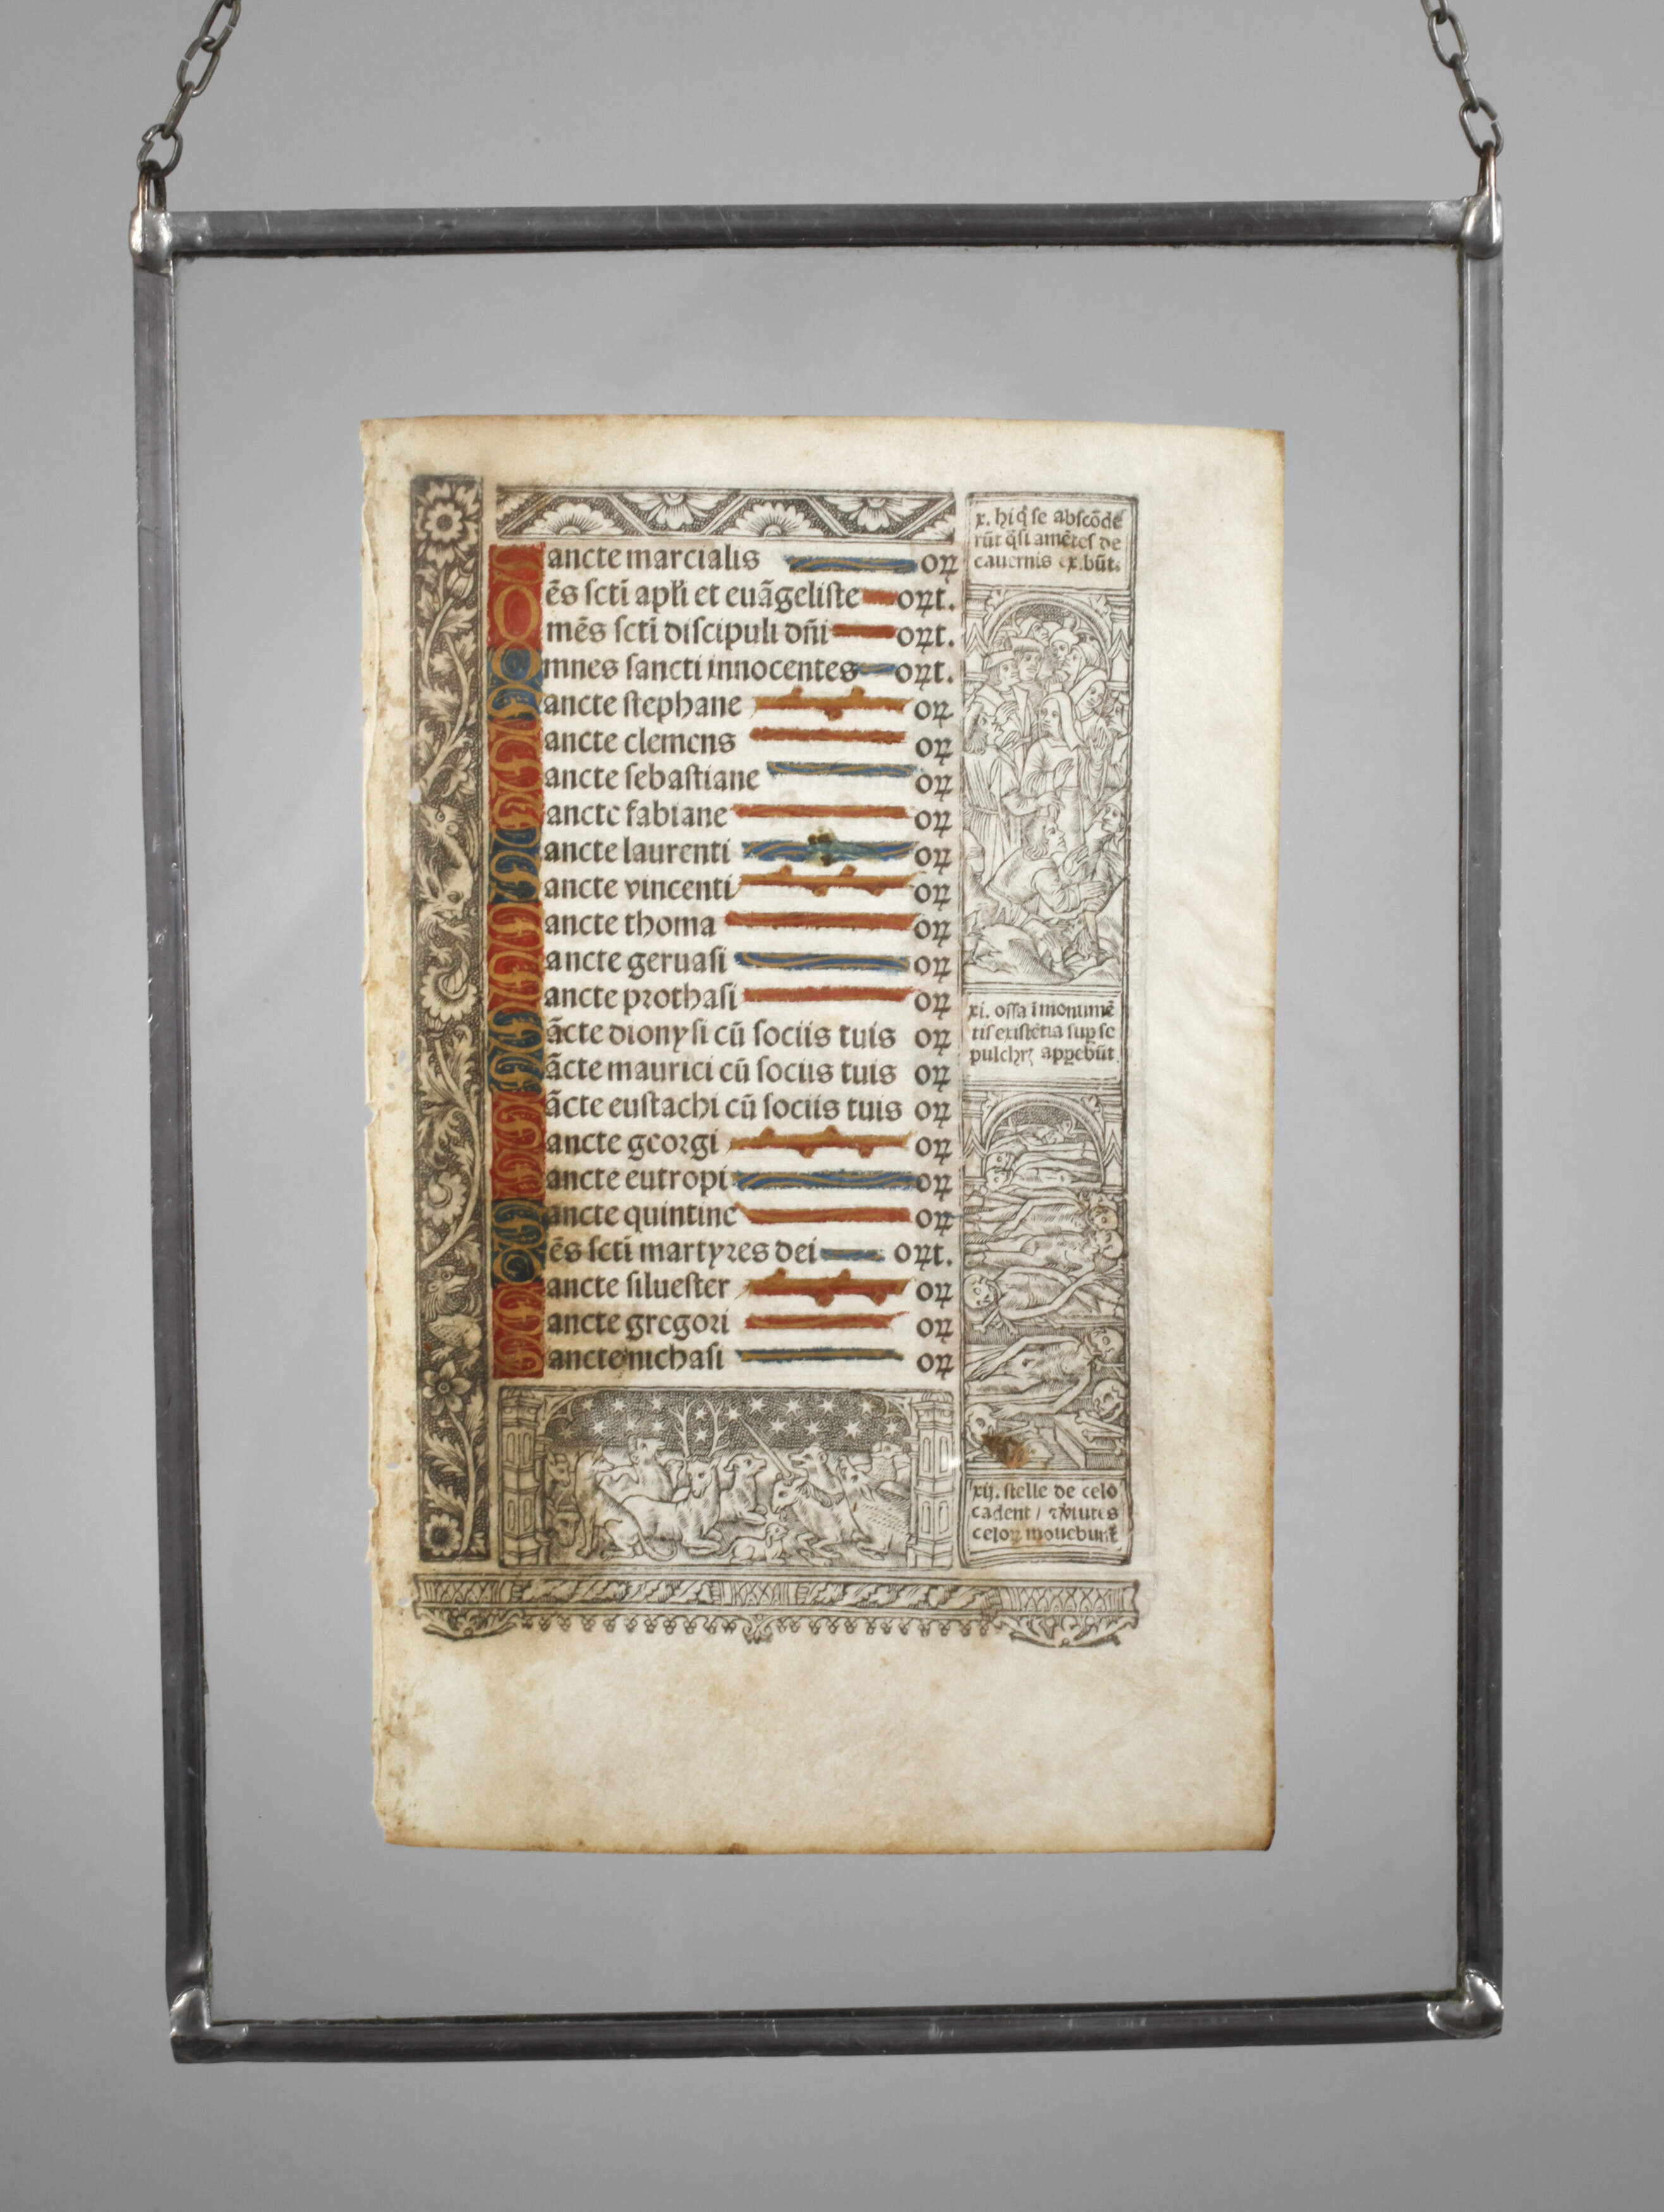 Sancte marcialis oꝝ
Oēs ſctī apľi et euāgeliſte oꝝt.
Omēs ſctī diſcipuli dñi oꝝt.
Omnes ſancti innocentes oꝝt.
Sancte ſtephane oꝝ
Sancte clemens oꝝ
Sancte ſebaſtiane oꝝ
Sancte fabiane oꝝ
Sancte laurenti oꝝ
Sancte vincenti oꝝ
Sancte thoma oꝝ
Sancte geruaſi oꝝ
Sancte prothaſi oꝝ
Sācte dionyſi cū ſociis tuis oꝝ
Sācte maurici cū ſociis tuis oꝝ
Sācte euſtachi cū ſociis tuis oꝝ
Sancte georgi oꝝ
Sancte eutropi oꝝ
Sancte quintine oꝝ
Oēs ſctī martyres dei oꝝt.
Sancte ſilueſter oꝝ
Sancte gregori oꝝ
Sancte nichaſi oꝝ
x. hi q̄ ſe abſcōdē
rūt q̄ſi amētes de
cauernis exibūt.
xi. oſſa ī monumē
tiſ exiſtētia ſup ſe
pulchrꝝ apparebūt
xij. ſtelle de celo
cadent / ⁊ v̄tutes
celoꝝ mouebunt̄